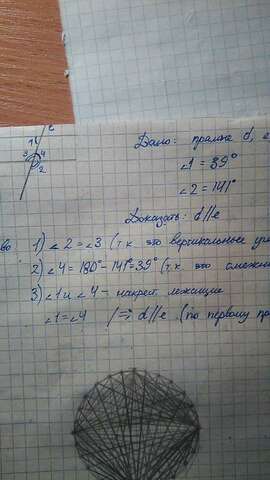 e
1
3 4
2
Дано: прямые d, e
∠1 = 39°
∠2 = 141°
Доказать: d||e
во 1) ∠2 = ∠3 (т.к это вертикальные
2) ∠4 = 180° - 141° = 39° (т.к это смежн
3) ∠1 и ∠4 - накрест лежащие
∠1 = ∠4 /=> d||e (по первому пр